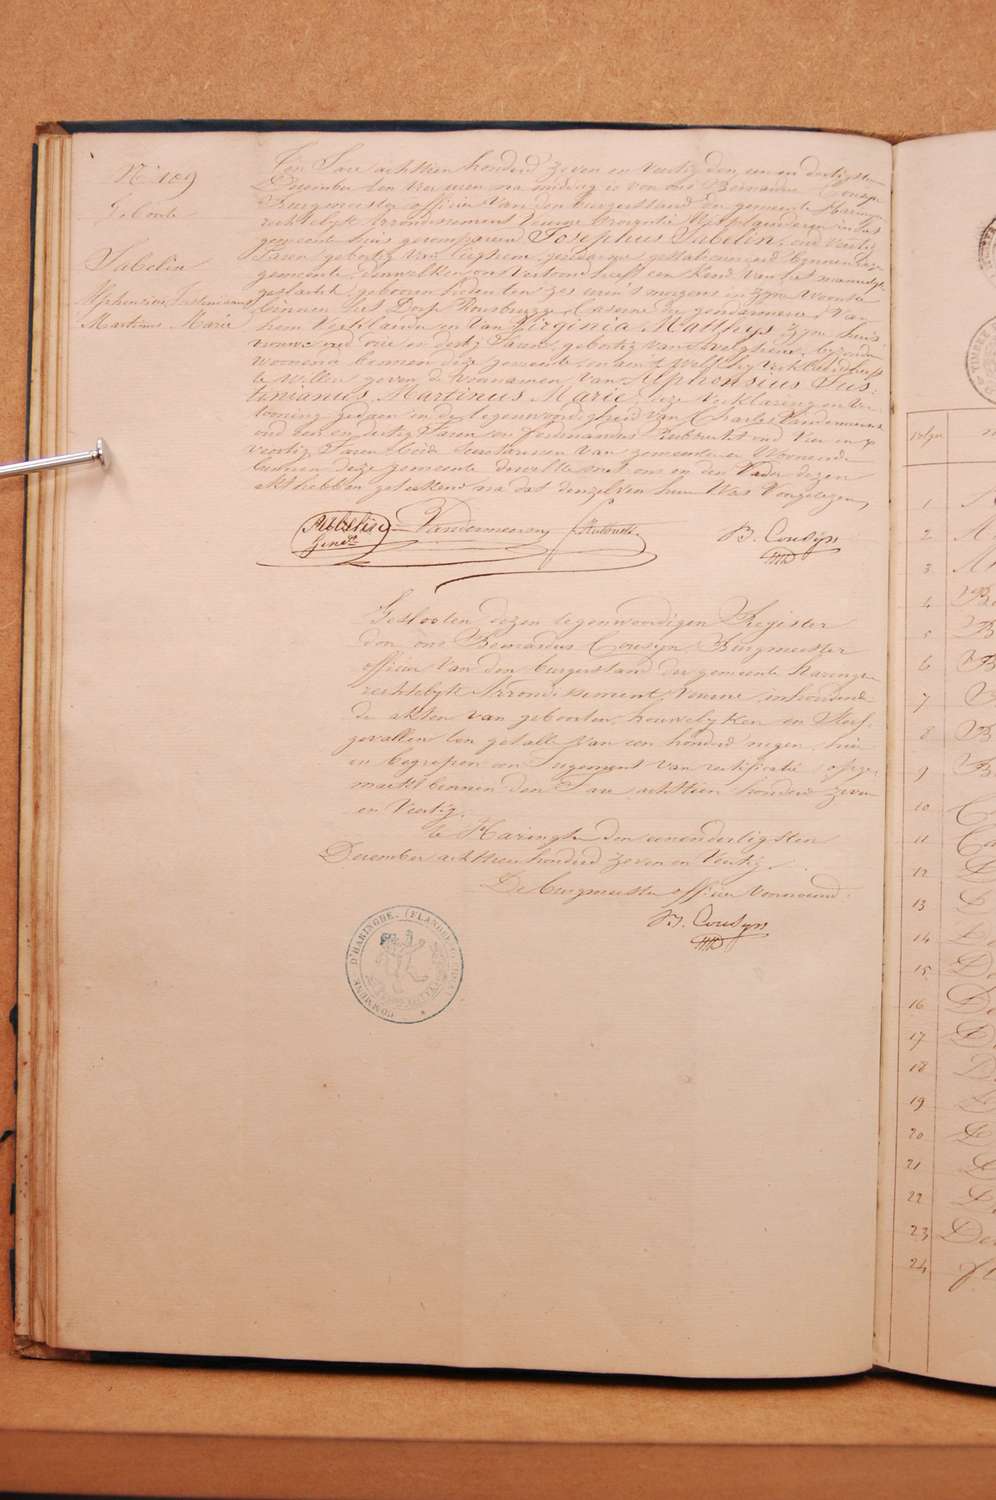 N° 109
Geboorte
Sabelin
Alphonsius Justinianus
Martinus Marie
Ten Jare achttien honderd zeven en veertig den een en dertigsten
December ten vier uren na middag is voor ons Bernardus Cousyn
Burgmeester officier van den burgerstand der gemeente Haringe
rechtelyk Arrondissement Veurne Provintie Westvlaenderen in het
gemeente huis gecompareerd Josephus Sabelin, oud veertig
Jaren geboortig van gendarme gestationneerd binnen deze
gemeente, denwelken ons vertoond heeft een kind van het mannelyk
geslacht, geboren heden ten zes uren 's morgens in zyne woonste
binnen het Dorp Rousbrugge Caserne der gendarmerie, van
hem Verklaerder en van Virginia Matthys zyne huis
vrouwe oud drie en dertig Jaren, geboortig van byzondere
woonende binnen deze gemeente, en aen 't welk hy verklaerd heeft
te willen geven de voornamen van Alphonsius Jus-
tinianus Martinus Marie, deze verklaering en ver-
tooning gedaen in de tegenwoordigheid van Charles Vandermeersch
oud een en dertig Jaren en Ferdinandus oud vier en
veertig Jaren beide van gemeente en woonende
binnen deze gemeente dewelke met ons en den Vader dezen
akt hebben geteekend na dat denzelven hun was voorgelezen,
Sabelin Vandermeersch B. Cousyn
Gend.
Geslooten dezen tegenwoordigen Register
door ons Bernardus Cousyn Burgmeester
officier van den burgerstand der gemeente Haringe
rechtelyk Arrondissement Veurne, inhoudende
de akten van geboorten, houwelyken en Sterf-
gevallen ten getalle van een honderd negen, hier
in begrepen een Jugement van rectificatie opge-
maekt binnen den Jare achttien honderd zeven
en Veertig.
te Haringhe den eenendertigsten
December achttien honderd zeven en Veertig.
De burgmeester officier voornoemd.
B. Cousyn
COMMUNE D'HARINGHE (FLANDRE OCCIDENT.)
volgn
1
2
3
4
5
6
7
8
9
10
11
12
13
14
15
16
17
18
19
20
21
22
23
24